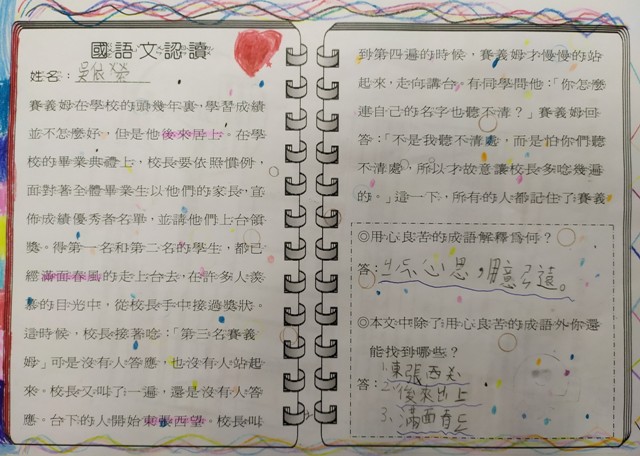 國語文認讀
姓名：吳依縈
賽義姆在學校的頭幾年裏，學習成績
並不怎麼好，但是他後來居上。在學
校的畢業典禮上，校長要依照慣例，
面對著全體畢業生以他們的家長，宣
佈成績優秀者名單，並請他們上台領
獎。得第一名和第二名的學生，都已
經滿面春風的走上台去，在許多人羨
慕的目光中，從校長手中接過獎狀。
這時候，校長接著唸：「第三名賽義
姆」可是沒有人答應，也沒有人站起
來。校長又叫了一遍，還是沒有人答
應。台下的人開始東張西望。校長叫
到第四遍的時候，賽義姆才慢慢的站
起來，走向講台。有同學問他：「你怎麼
連自己的名字也聽不清？」賽義姆回
答：「不是我聽不清處，而是怕你們聽
不清處，所以才故意讓校長多唸幾遍
的。」這一下，所有的人都記住了賽義
◎用心良苦的成語解釋為何？
答：心思，用意深遠。
◎本文中除了用心良苦的成語外你還
能找到哪些？
1.東張西
答：2.後來居上
3.滿面春